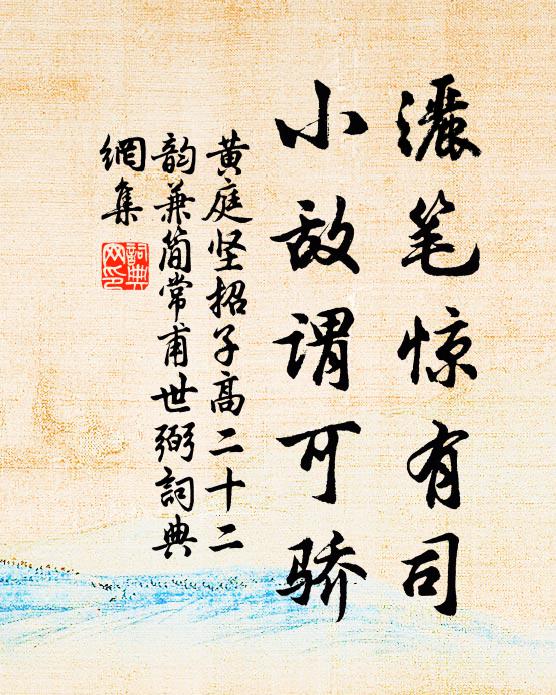 灑笔惊有司
小敌谓可骄
黄庭坚招子高二十二
韵兼简常甫世弼詞典
網集
詞典
网印